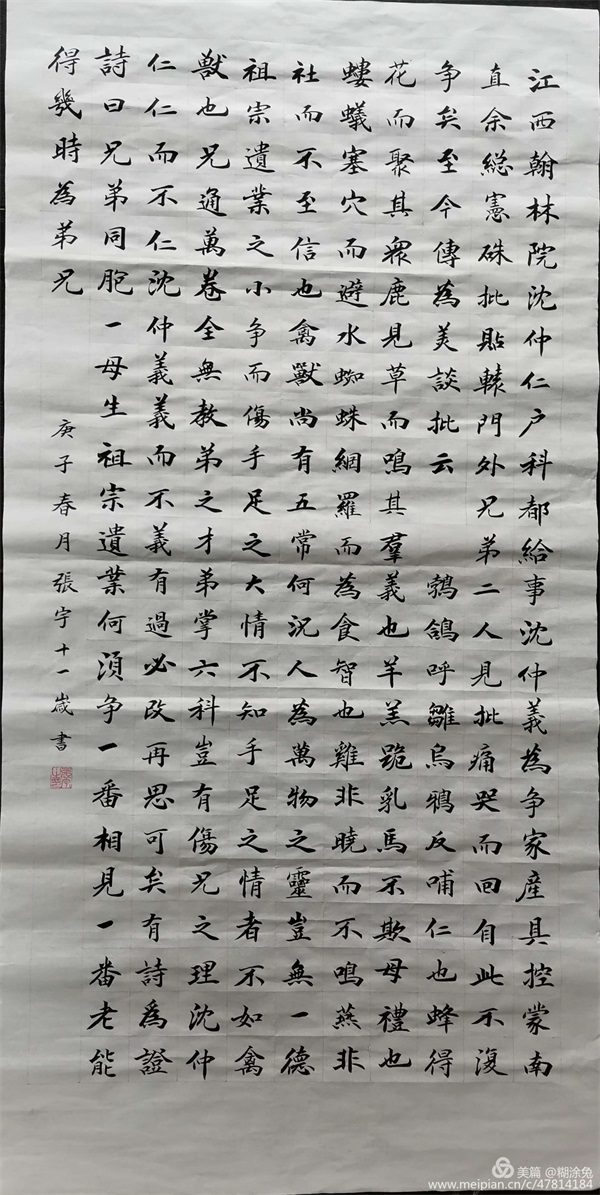 江西翰林院沈仲仁户科都給事沈仲義為争家産具控蒙南
直余総憲硃批貼轅門外兄弟二人見批痛哭而回自此不復
争矣至今傳為美談批云　鵓鴿呼雛烏鴉反哺仁也蜂得
花而聚其衆鹿見草而鳴其羣義也羊羔跪乳馬不欺母禮也
螻蟻塞穴而避水蜘蛛網羅而為食智也雞非曉而不鳴燕非
社而不至信也禽獸尚有五常何況人為萬物之靈豈無一德
祖宗遺業之小争而傷手足之大情不知手足之情者不如禽
獸也兄通萬卷全無教弟之才弟掌六科豈有傷兄之理沈仲
仁仁而不仁沈仲義義而不義有過必改再思可矣有詩為證
詩曰兄弟同胞一母生祖宗遺業何須争一番相見一番老能
得幾時為弟兄
庚子春月張宇十一歲書
美篇 @糊涂兔
www.meipian.cn/c/47814184